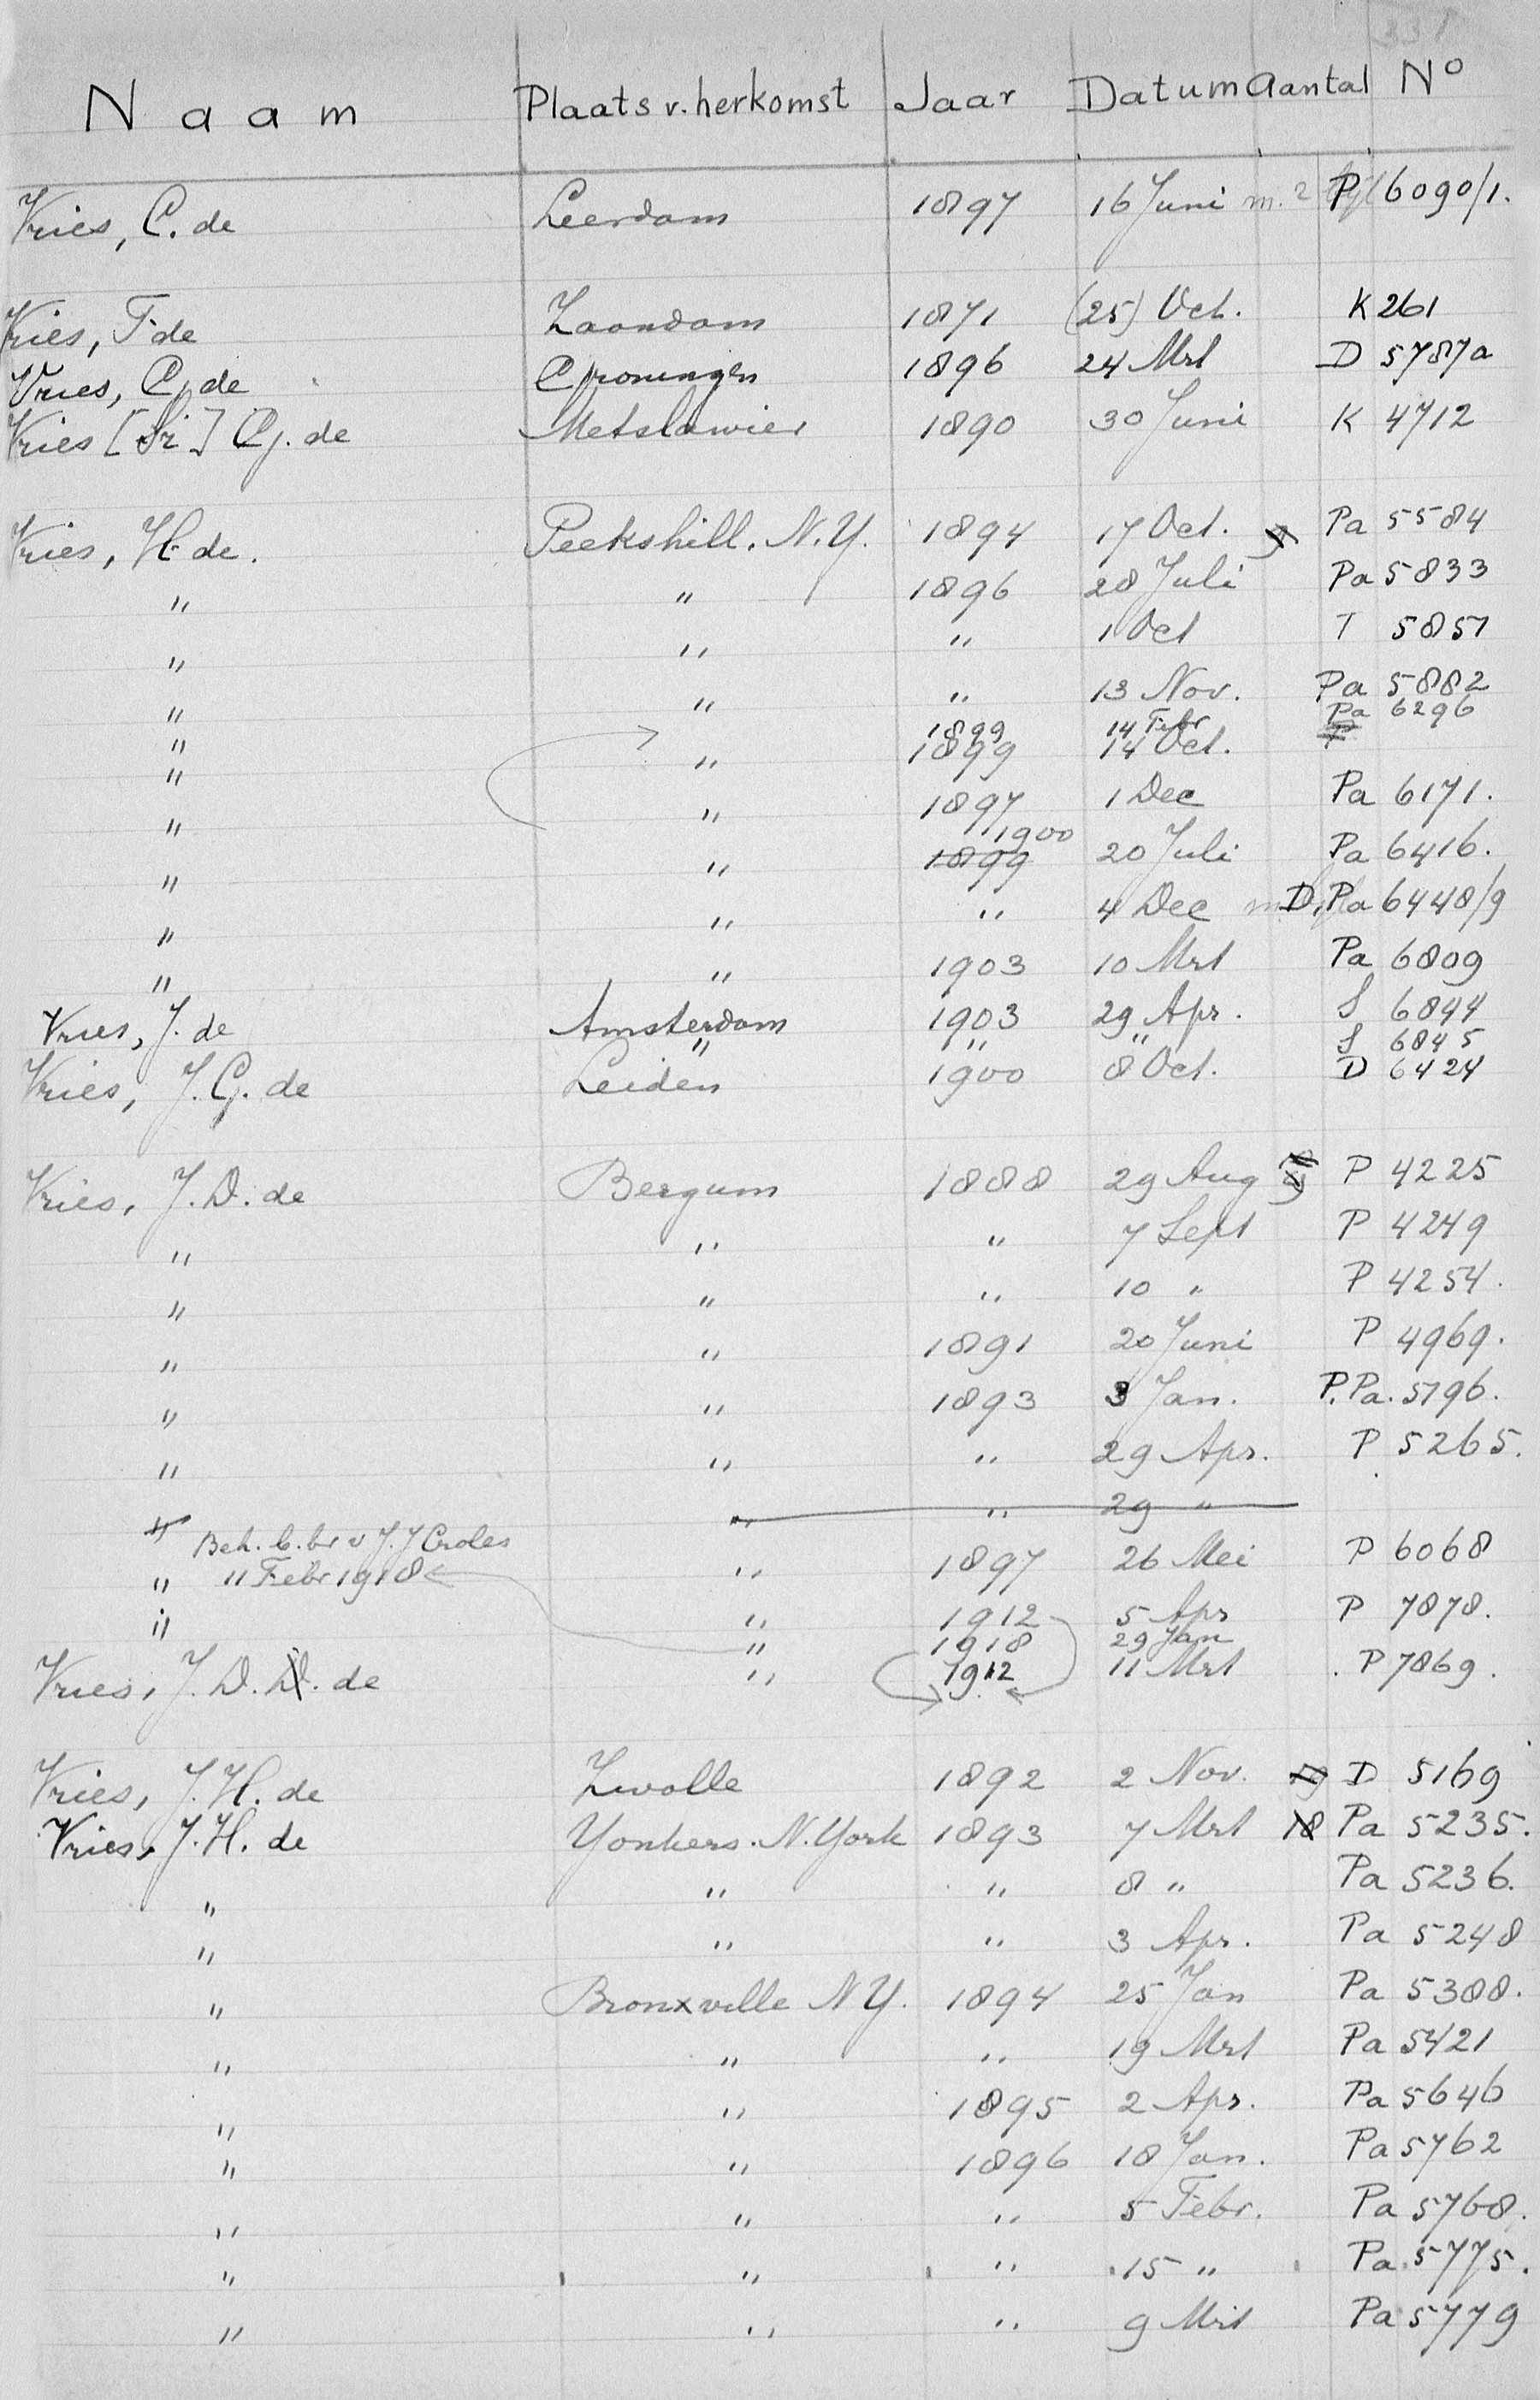 331
Naam Plaats v. herkomst Jaar Datum Aantal No
Vries, C. de Leerdam 1897 16 Juni m. 2 P 6090/1.
Vries, F. de Zaandam 1871 (25) Oct. K 261
Vries, G. de Groningen 1896 24 Mrt D 5787a
Vries [Sr] G. de Metslawier 1890 30 Juni K 4712
Vries, H. de. Peekshill. N.Y. 1894 17 Oct. Pa 5584
" " 1896 28 Juli Pa 5833
" " " 1 Oct T 5851
" " " 13 Nov. Pa 5882
" 1899 14 Febr Pa 6296
" " 1899 14 Oct. P
" " 1897 1 Dec Pa 6171.
1900
" " 1899 20 Juli Pa 6416.
" " " 4 Dec D, Pa 6448/9
" " 1903 10 Mrt Pa 6809
Vries, J. de Amsterdam 1903 29 Apr. S 6844
" " " S 6845
Vries, J. G. de Leiden 1900 8 Oct. D 6424
Vries, J. D. de Bergum 1888 29 Aug P 4225
" " " 7 Sept P 4249
" " " 10 " P 4254.
" " 1891 20 Juni P 4969.
" " 1893 3 Jan. P. Pa. 5196.
" " " 29 Apr. P 5265.
" " " 29 "
Beh. b. br v J. J Croles
" 11 Febr 1918 " 1897 26 Mei P 6068
" " 1912 5 Apr P 7878.
" 1918 29 Jan
Vries, J. D. D. de " 1912 11 Mrt P 7869.
Vries, J. H. de Zwolle 1892 2 Nov. 19 D 5169
Vries, J. H. de Yonkers. N. York 1893 7 Mrt 18 Pa 5235.
" " " 8 " Pa 5236.
" " " 3 Apr. Pa 5248
" Bronxville N Y. 1894 25 Jan Pa 5388.
" " " 19 Mrt Pa 5421
" " 1895 2 Apr. Pa 5646
" " 1896 18 Jan. Pa 5762
" " " 5 Febr. Pa 5768.
" " " 15 " Pa 5775.
" " " 9 Mrt Pa 5779